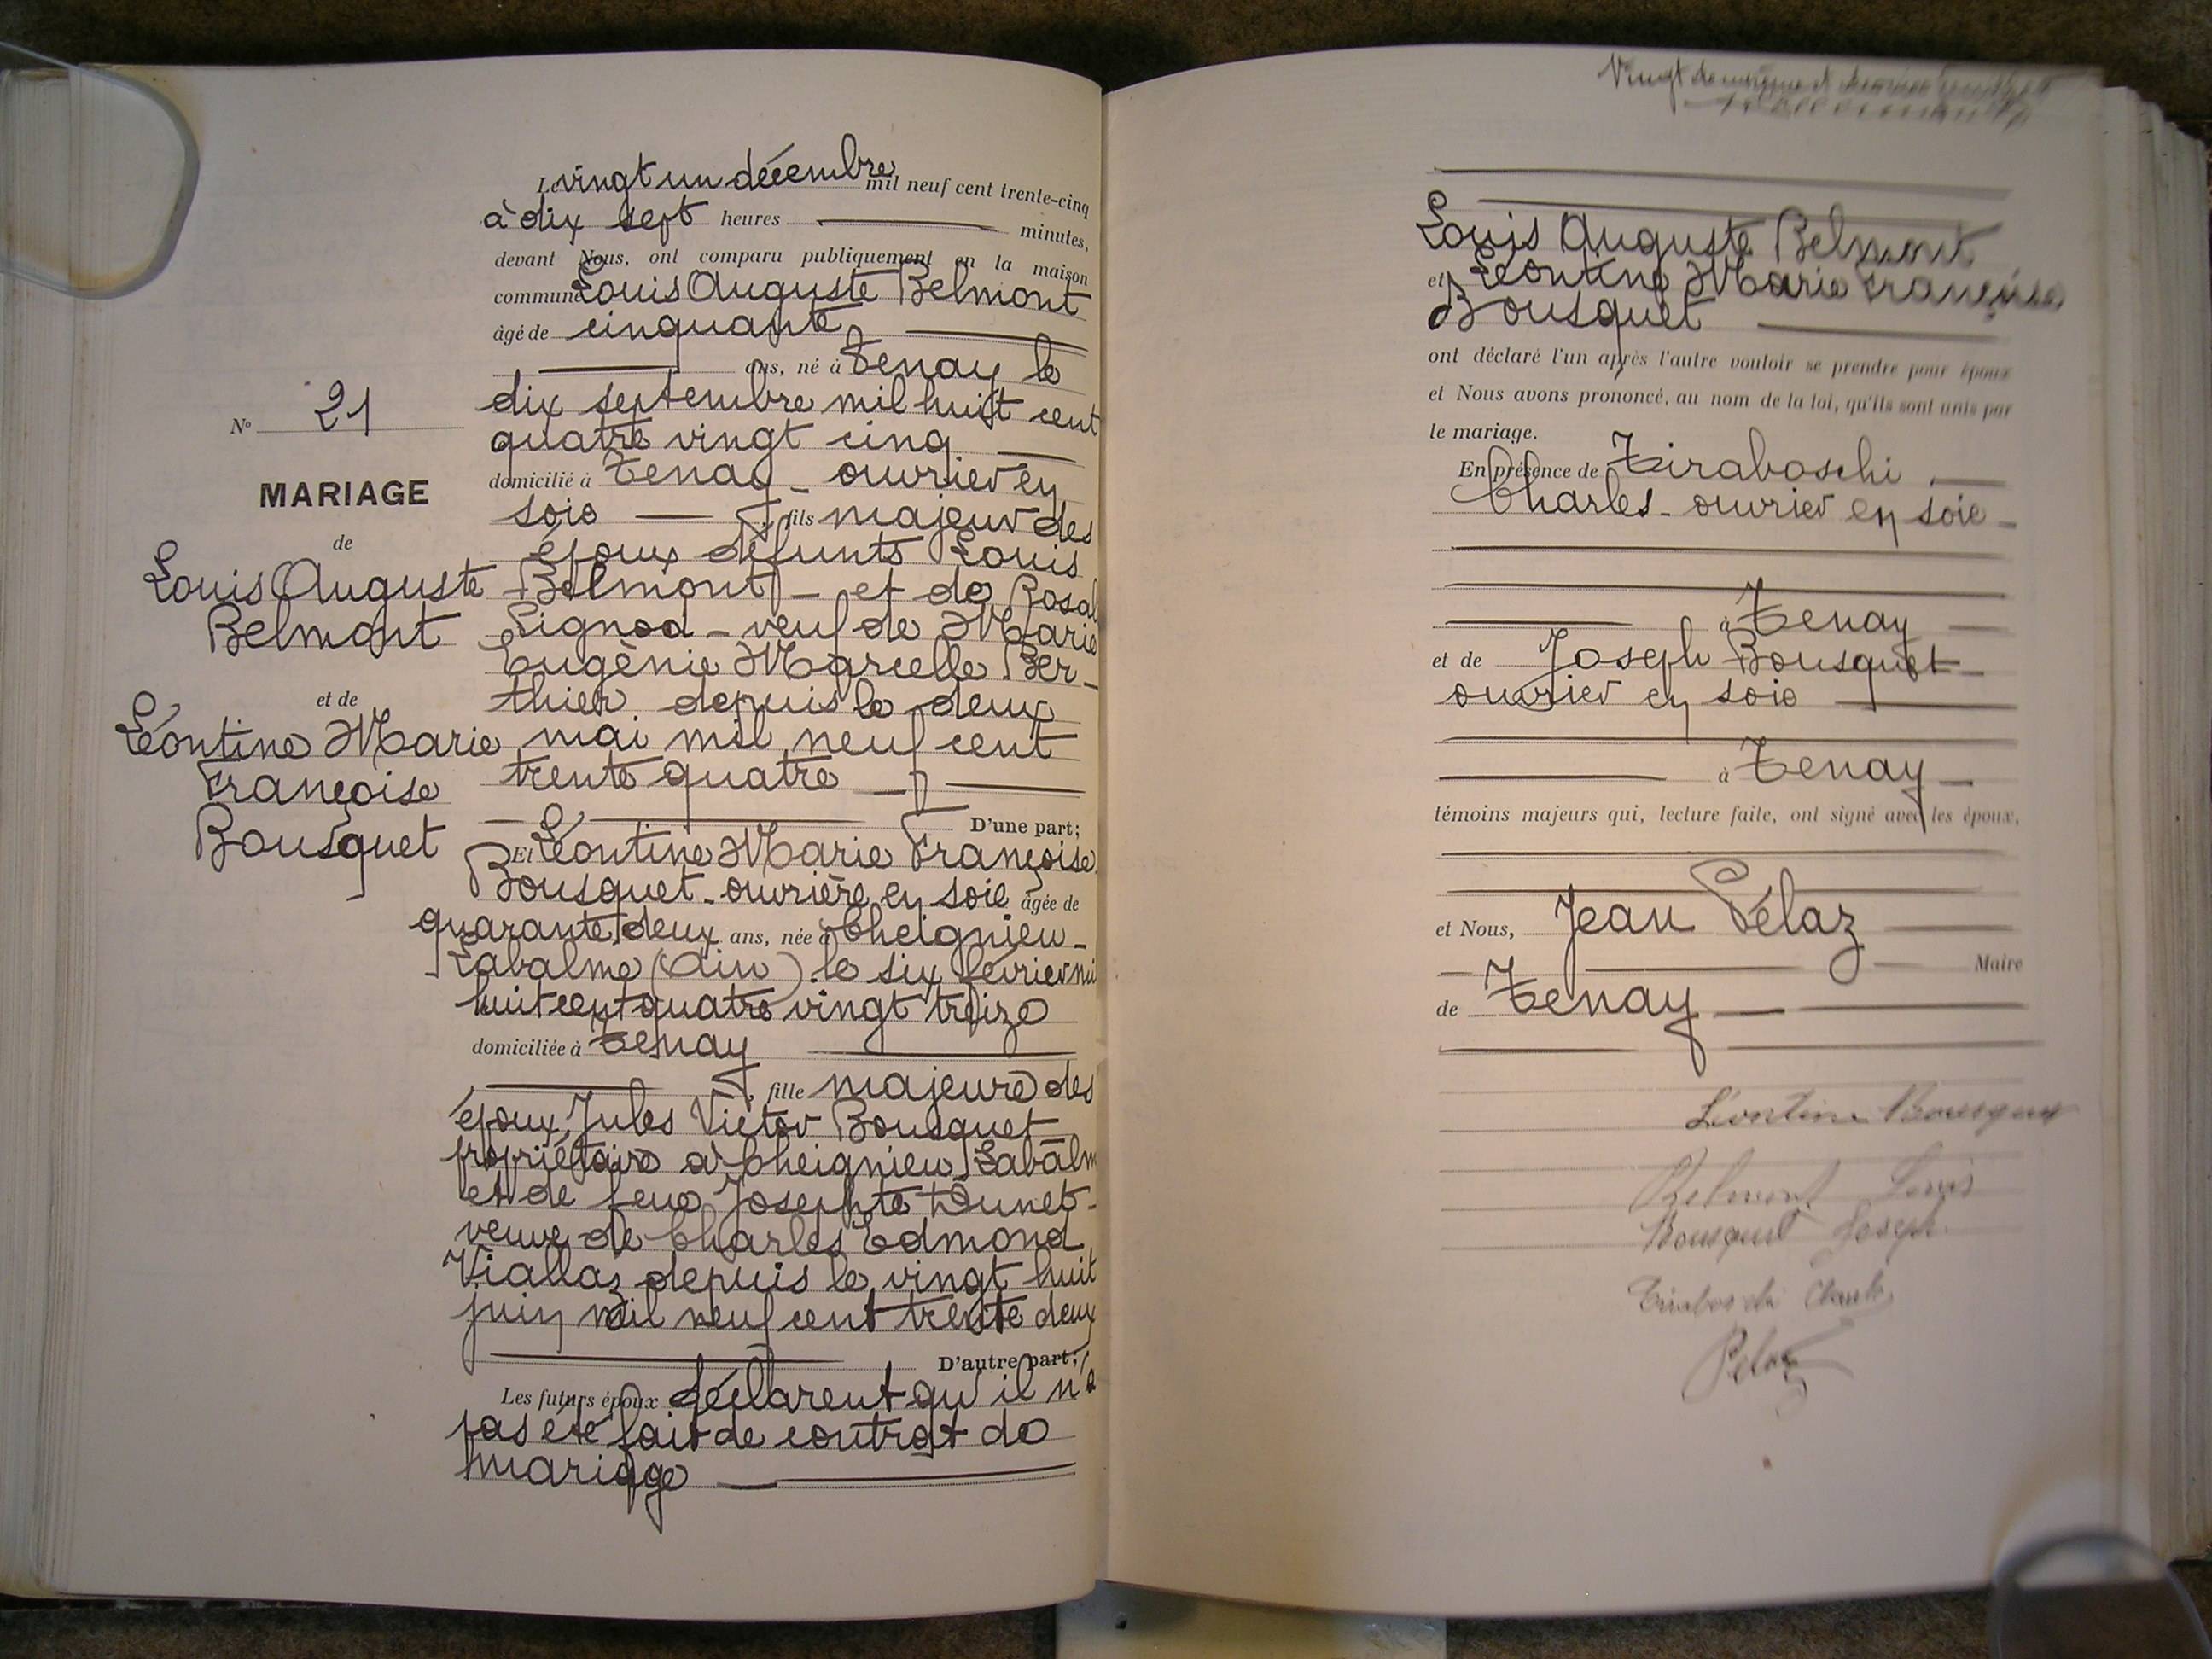 Le vingt un décembre mil neuf cent trente-cinq
à dix sept heures minutes,
devant Nous, ont comparu publiquement en la maison
commune Louis Auguste Belmont
âgé de cinquante
ans, né à Tenay le
dix septembre mil huit cent
quatre vingt cinq
domicilié à Tenay - ouvrier en
soie fils majeur des
époux défunts Louis
Belmont - et de Rosal
Lignod - veuf de Marie
Eugènie Marcelle Ber-
thier depuis le deux
mai mil neuf cent
trente quatre
D'une part;
Et Léontine Marie Françoise
Bousquet - ouvrière en soie âgée de
quarante deux ans, née à Cheignieu -
Labalme (Ain) le six février mil
huit cent quatre vingt treize
domiciliée à Tenay
, fille majeure des
époux Jules Victor Bousquet
propriétaire à Cheignieu Labalm
et de feue Josephte Dunet -
veuve de Charles Edmond
Viallaz depuis le vingt huit
juin mil neuf cent trente deux
D'autre part;
Les futurs époux déclarent qu'il n'a
pas été fait de contrat de
mariage
N° 21
MARIAGE
de
Louis Auguste
Belmont
et de
Léontine Marie
Françoise
Bousquet
Vingt
Louis Auguste Belmont
et Léontine Marie Françoise
Bousquet
ont déclaré l'un après l'autre vouloir se prendre pour époux
et Nous avons prononcé, au nom de la loi, qu'ils sont unis par
le mariage.
En présence de Tiraboschi
Charles - ouvrier en soie -
à Tenay
et de Joseph Bousquet -
ouvrier en soie
à Tenay -
témoins majeurs qui, lecture faite, ont signé avec les époux,
et Nous, Jean Pélaz
Maire
de Tenay
Léontine Bousquet
Belmont Louis
Bousquet Joseph
Tiraboschi Charles
Pelaz